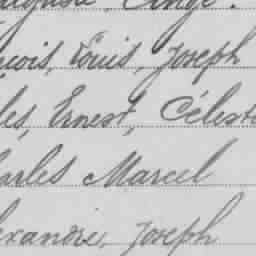 Auguste, Ange.
nçois, Louis, Joseph
les, Ernest, Célest
harles Marcel
exandre, Joseph